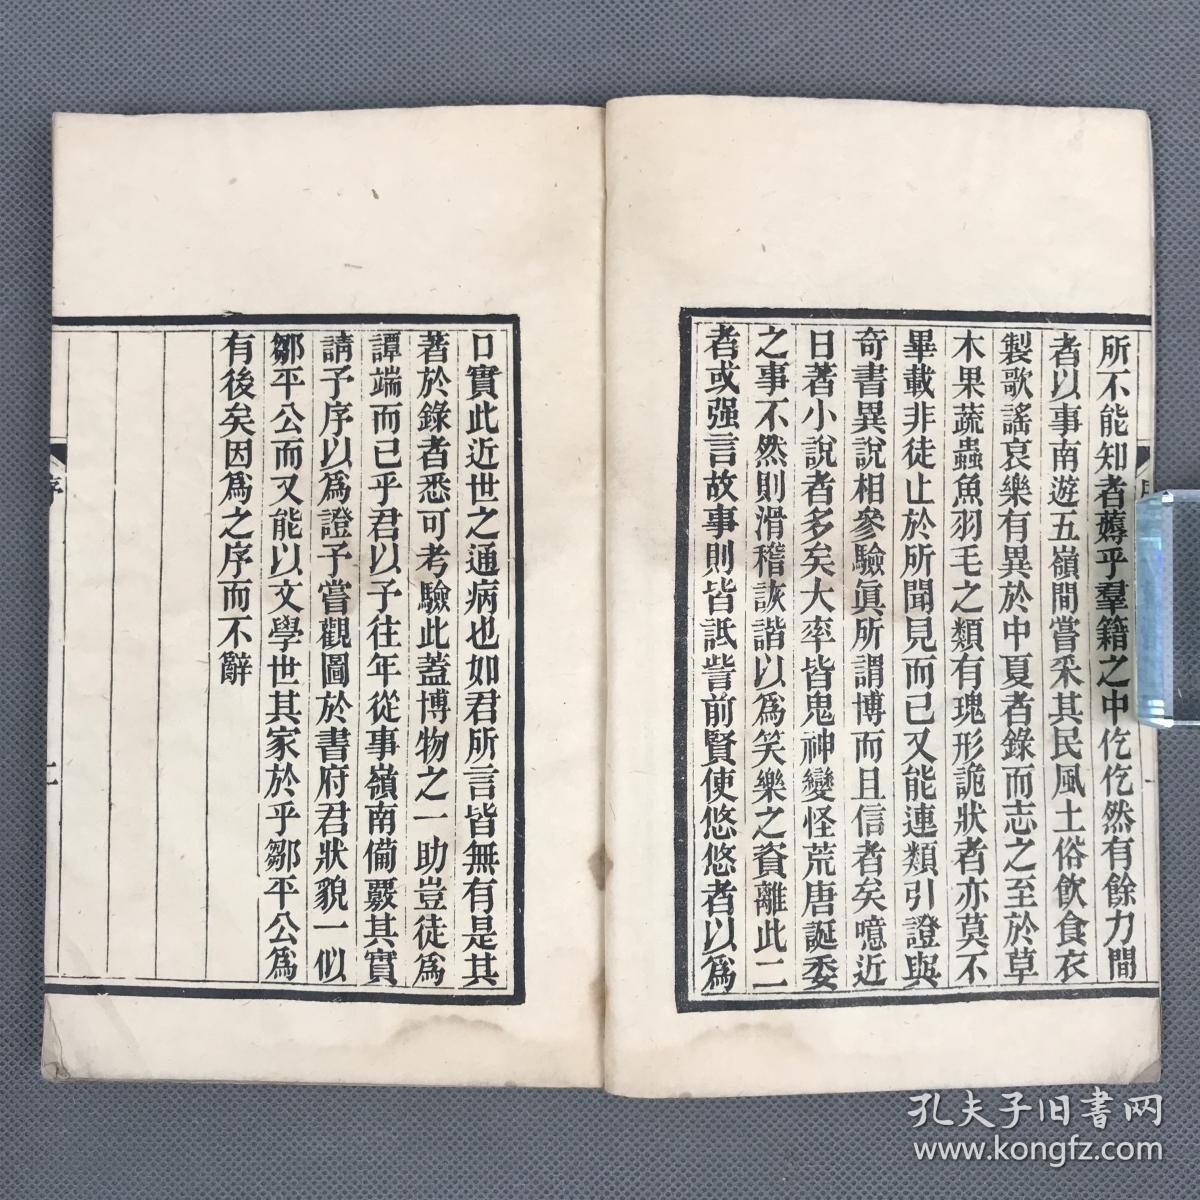 所不能知者薅乎羣籍之中仡仡然有餘力間
者以事南遊五嶺間嘗采其民風土俗飲食衣
製歌謠哀樂有異於中夏者錄而志之至於草
木果蔬蟲魚羽毛之類有瑰形詭狀者亦莫不
畢載非徒止於所聞見而已又能連類引證與
奇書異說相參驗眞所謂博而且信者矣噫近
日著小說者多矣大率皆鬼神變怪荒唐誕委
之事不然則滑稽詼諧以爲笑樂之資離此二
者或强言故事則皆詆訾前賢使悠悠者以爲
口實此近世之通病也如君所言皆無有是其
著於錄者悉可考驗此蓋博物之一助豈徒爲
譚端而已乎君以予往年從事嶺南備覈其實
請予序以爲證予嘗觀圖於書府君狀貌一似
鄒平公而又能以文學世其家於乎鄒平公爲
有後矣因爲之序而不辭
序
孔夫子旧书网
www.kongfz.com